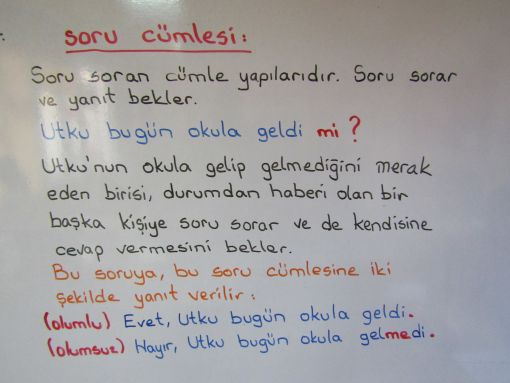 soru cümlesi:
Soru soran cümle yapılarıdır. Soru sorar
ve yanıt bekler.
Utku bugün okula geldi mi?
Utku'nun okula gelip gelmediğini merak
eden birisi, durumdan haberi olan bir
başka kişiye soru sorar ve de kendisine
cevap vermesini bekler.
Bu soruya, bu soru cümlesine iki
şekilde yanıt verilir:
(olumlu) Evet, Utku bugün okula geldi.
(olumsuz) Hayır, Utku bugün okula gelmedi.